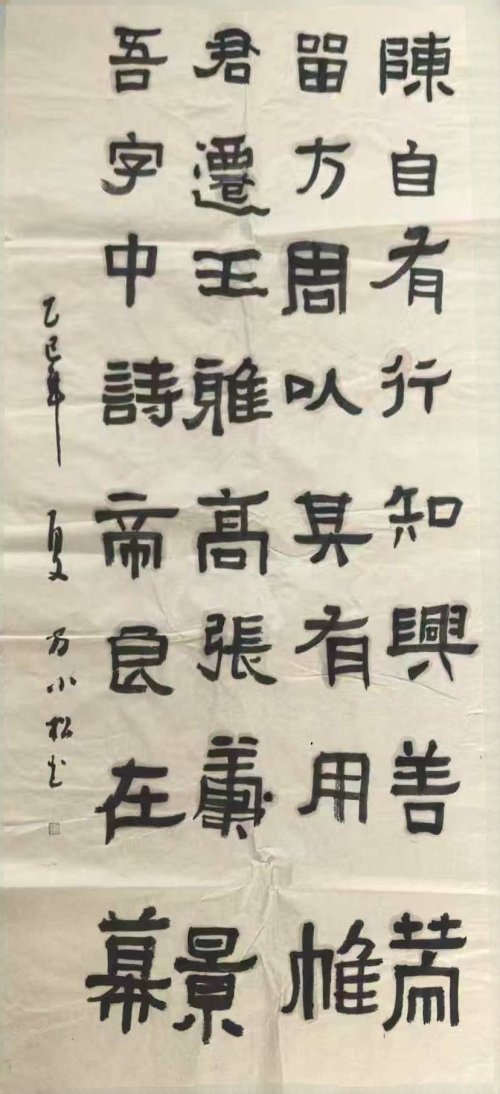 陳自有行知興善茼
畱方周以其有用帷
君遷王雅高張景
吾字中詩帝良在幕
乙巳年 夏 方小松书